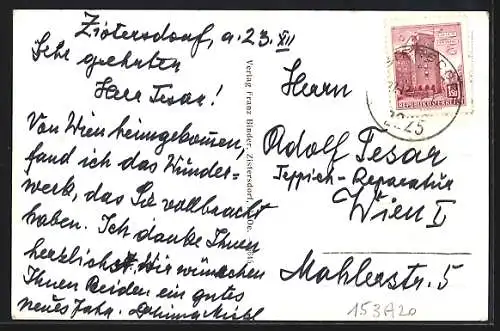 Zistersdorf, a. 23. XII
Sehr geehrter
Herr Tesar!
Von Wien heimgekommen,
fand ich das Wunder-
werk, das Sie vollbracht
haben. Ich danke Ihnen
herzlichst. Wir wünschen
Ihnen Beiden ein gutes
neues Jahr.
Verlag Franz Binder, Zistersdorf,
Herrn
Adolf Tesar
Teppich-Reparatur
Wien I
Mahlerstr. 5
153A20
REPUBLIK ÖSTERREICH
2225